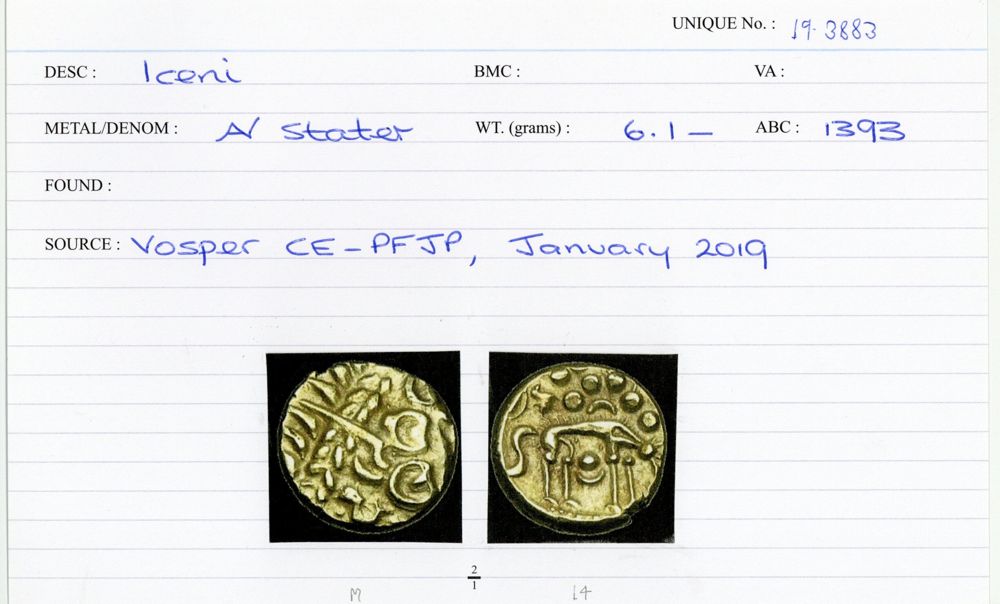 UNIQUE No. : 19-3883
DESC : Iceni BMC : VA :
METAL/DENOM : N Stater WT. (grams) : 6.1– ABC : 1393
FOUND :
SOURCE : Vosper CE-PFJP, January 2019
2
1
M 14